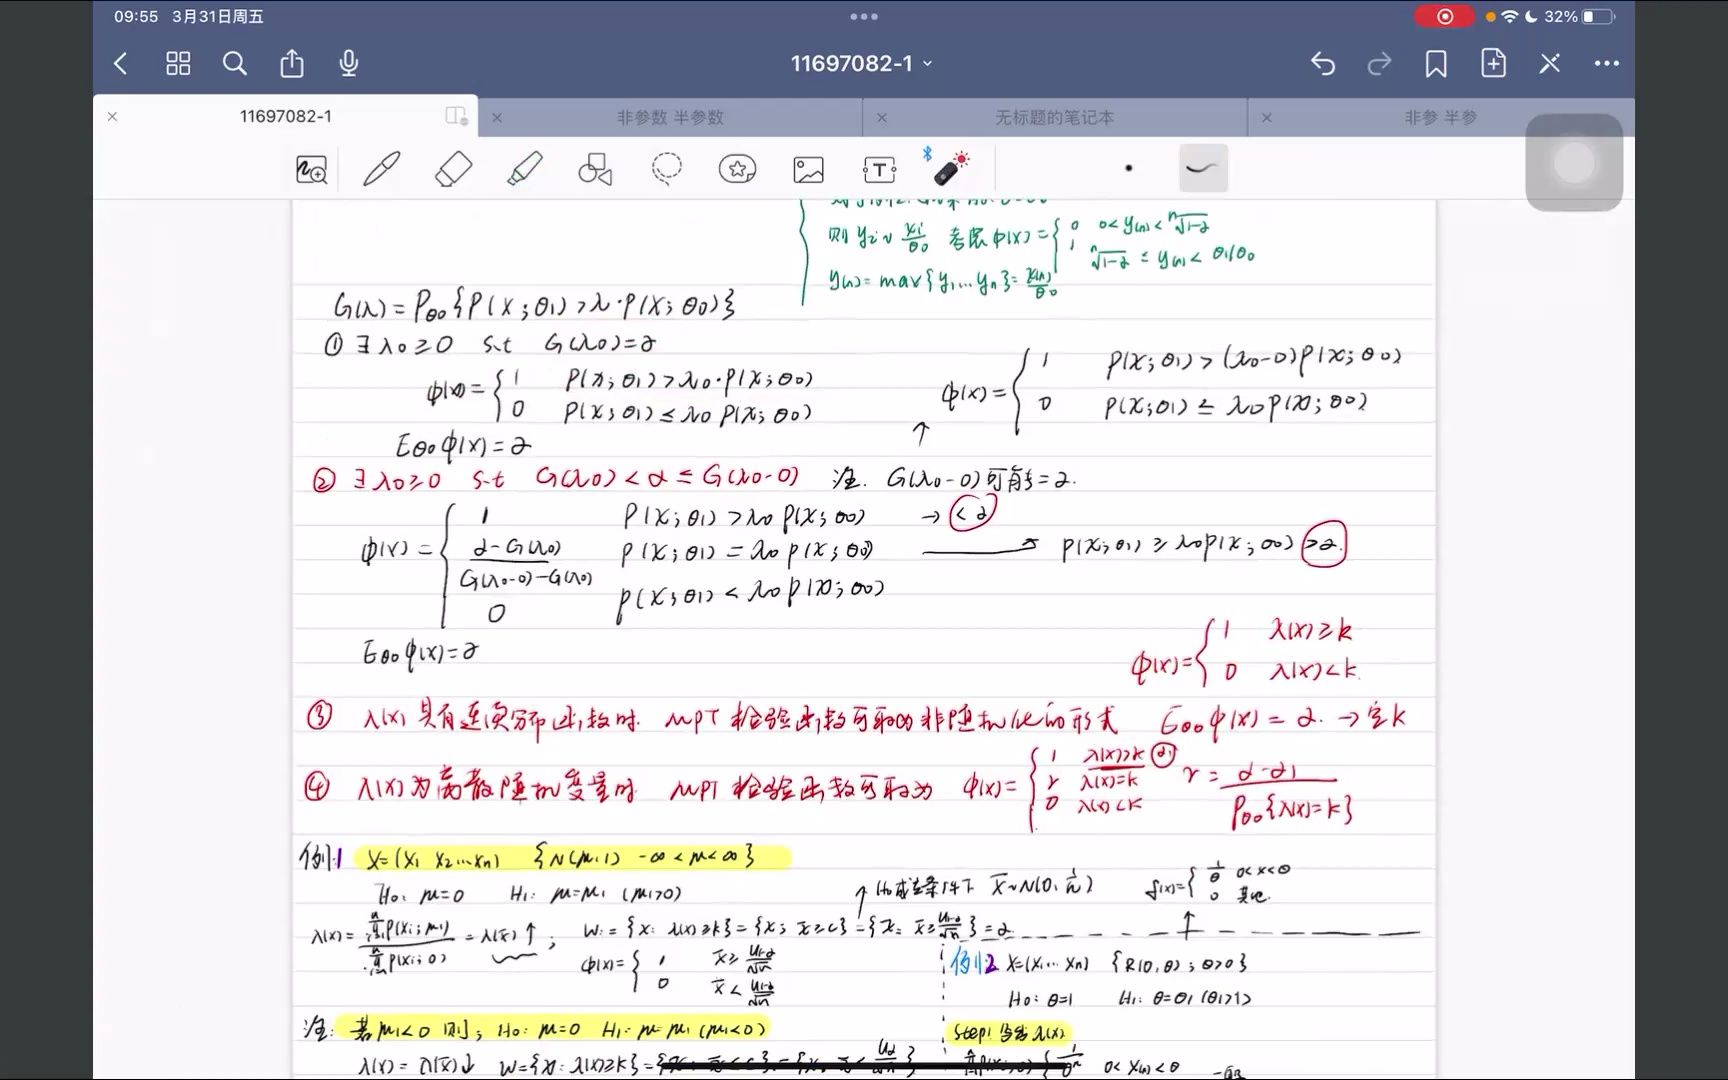 09:55 3月31日周五
32%
11697082-1
11697082-1 非参数 半参数 无标题的笔记本 非参 半参
则 yi~ xi/θ0 考虑 φ(x)={ 0 0<y(n)<ⁿ√1-α
1 ⁿ√1-α ≤ y(n) < θ1/θ0
y(n)=max{y1...yn}=x(n)/θ0
G(λ)=Pθ0{P(X;θ1)>λ·P(X;θ0)}
① ∃λ0≥0 s.t G(λ0)=α
φ(x)={ 1 P(x;θ1)>λ0·P(x;θ0)
0 P(x;θ1)≤λ0 P(x;θ0)
φ(x)={ 1 P(x;θ1)>(λ0-0)P(x;θ0)
0 P(x;θ1)≤λ0P(x;θ0)
Eθ0φ(x)=α
↑
② ∃λ0≥0 s.t G(λ0)<α≤G(λ0-0) 注. G(λ0-0)可能=α.
φ(x)={ 1 P(x;θ1)>λ0P(x;θ0) → <α
α-G(λ0)/G(λ0-0)-G(λ0) P(x;θ1)=λ0P(x;θ0) → P(x;θ1)≥λ0P(x;θ0) >α
0 P(x;θ1)<λ0P(x;θ0)
Eθ0φ(x)=α
φ(x)={ 1 λ(x)≥k
0 λ(x)<k.
③ λ(x)具有连续分布函数时. MPT检验函数可取为非随机化的形式 Eθ0φ(x)=α. →定k
④ λ(x)为离散随机变量时 MPT检验函数可取为 φ(x)={ 1 λ(x)>k α1
r λ(x)=k
0 λ(x)<k
r=α-α1/Pθ0{λ(x)=k}
例1 X=(x1 x2...xn) {N(μ,1) -∞<μ<∞}
H0: μ=0 H1: μ=μ1 (μ1>0)
↑ H0成立条件下 x̄~N(0,1/n)
f(x)={ 1/θ 0<x<θ
0 其他.
λ(x)=∏P(xi;μ1)/∏P(xi;0)=λ(x̄)↑; W:={x: λ(x)≥k}={x; x̄≥c}={x: x̄≥u1-α/√n}=α
φ(x)={ 1 x̄≥u1-α/√n
0 x̄<u1-α/√n
例2 X=(x1...xn) {R(0,θ);θ>0}
H0: θ=1 H1: θ=θ1 (θ1>1)
注: 若μ1<0 则; H0: μ=0 H1: μ=μ1(μ1<0)
Step1 写出λ(x)
λ(x)=λ(x̄)↓ W={x: λ(x)≥k}=
0<x(n)<θ